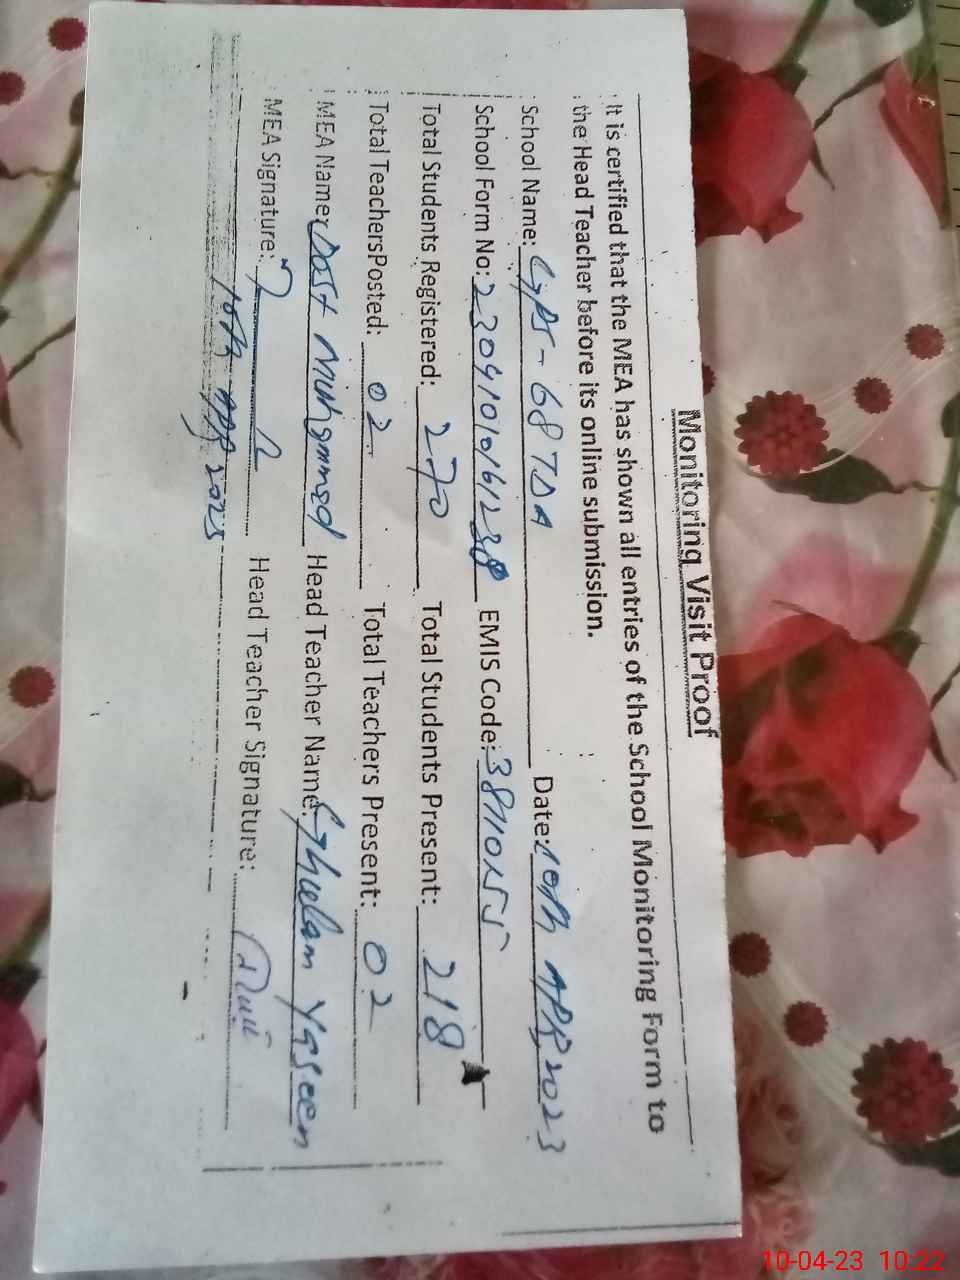 Monitoring Visit Proof
It is certified that the MEA has shown all entries of the School Monitoring Form to
the Head Teacher before its online submission.
School Name: GPS-68 TDA Date: 10th APR 2023
School Form No: EMIS Code:
Total Students Registered: 270 Total Students Present: 218
Total TeachersPosted: 02 Total Teachers Present: 02
MEA Name: Dost Muhammad Head Teacher Name: Ghulam Yaseen
MEA Signature: Head Teacher Signature:
10th APR
10-04-23 10:22